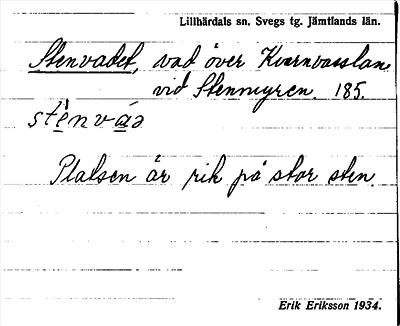 Lillhärdals sn. Svegs tg. Jämtlands län.
Stenvadet, vad över Kvarnvasslan
vid Stenmyren. 185.
stènváə
Platsen är rik på stor sten.
Erik Eriksson 1934.